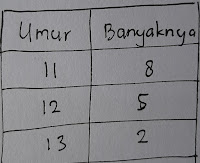 Umur Banyaknya
11 8
12 5
13 2